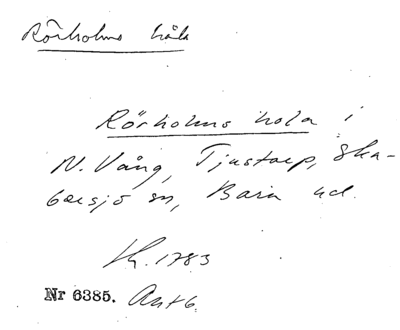 Rörholms håla
Rörholms hola i
N. Vång, Tjustorp, Ska-
bersjö sn, Bara hd.
1783
Nr 6385. Antb.